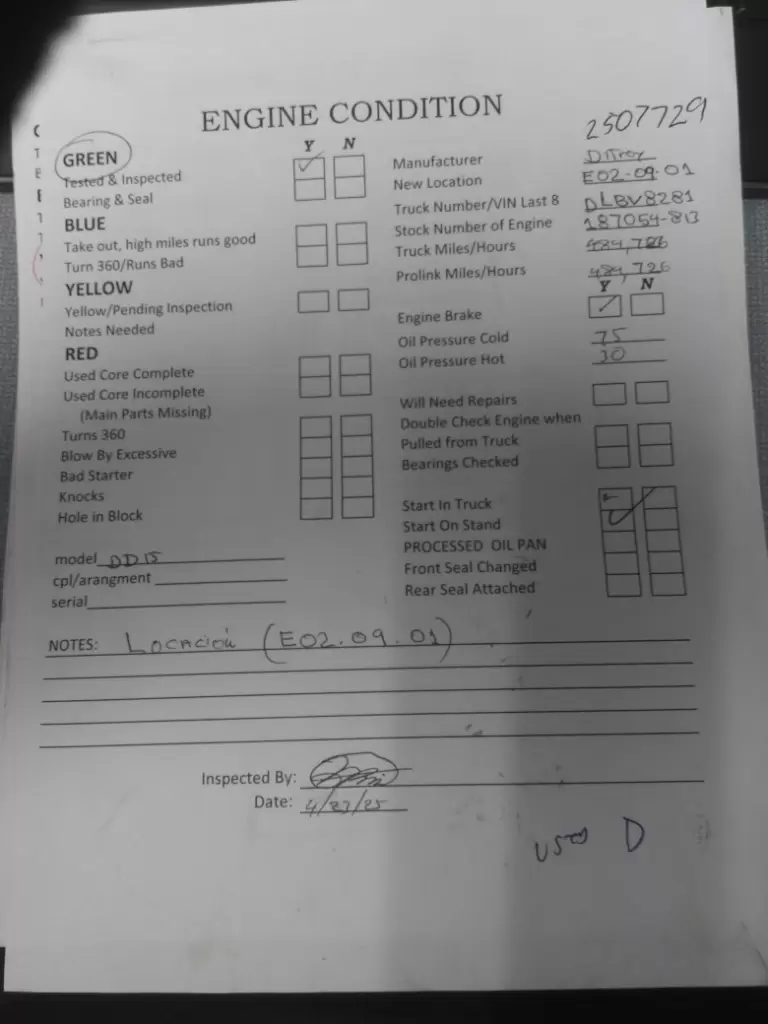 ENGINE CONDITION
2507729
Y N
GREEN
Tested & Inspected
Bearing & Seal
BLUE
Take out, high miles runs good
Turn 360/Runs Bad
YELLOW
Yellow/Pending Inspection
Notes Needed
RED
Used Core Complete
Used Core Incomplete
(Main Parts Missing)
Turns 360
Blow By Excessive
Bad Starter
Knocks
Hole in Block
model DD15
cpl/arangment
serial
Manufacturer DiTroy
New Location E02.09.01
Truck Number/VIN Last 8 DLBV8281
Stock Number of Engine 187054-813
Truck Miles/Hours 484,726
Prolink Miles/Hours 484,726
Y N
Engine Brake
Oil Pressure Cold 75
Oil Pressure Hot 30
Will Need Repairs
Double Check Engine when
Pulled from Truck
Bearings Checked
Start In Truck
Start On Stand
PROCESSED OIL PAN
Front Seal Changed
Rear Seal Attached
NOTES: Locación (E02.09.01)
Inspected By:
Date: 4/23/25
USED D